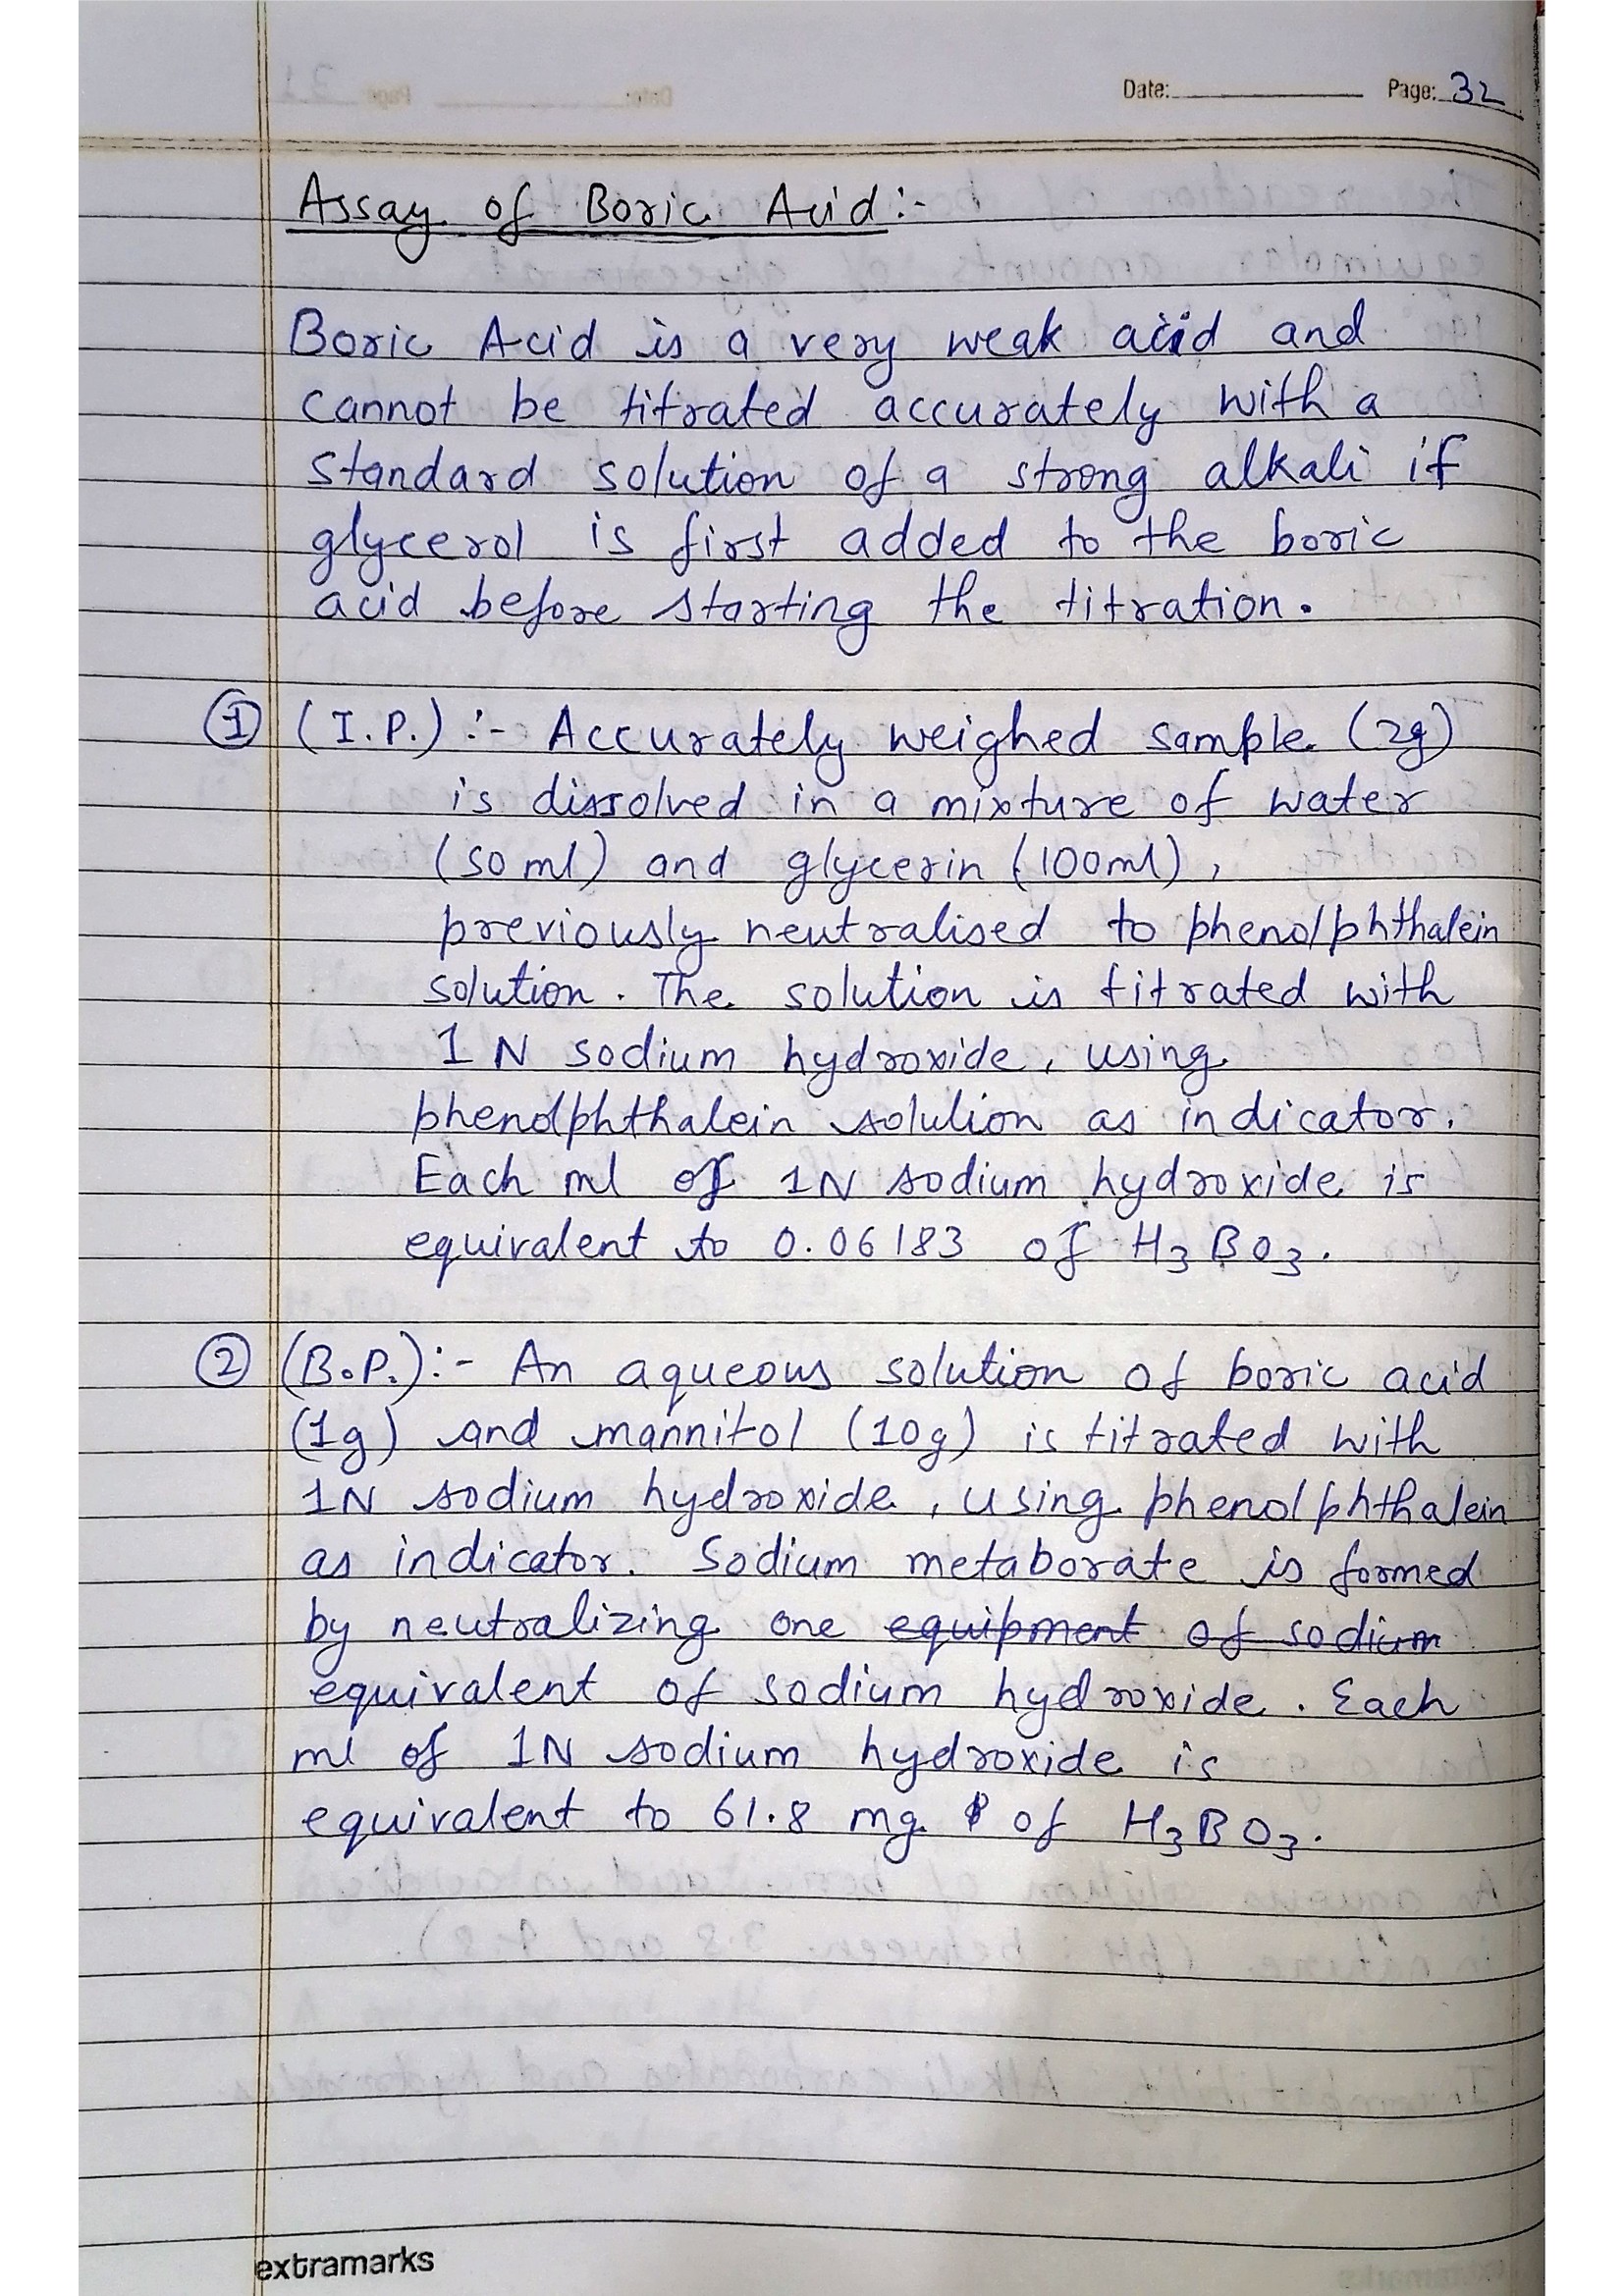 Date: Page: 32
Assay of Boric Acid:-
Boric Acid is a very weak acid and
cannot be titrated accurately with a
standard solution of a strong alkali if
glycerol is first added to the boric
acid before starting the titration.
① (I.P.) :- Accurately weighed sample (2g)
is dissolved in a mixture of water
(50 ml) and glycerin (100ml),
previously neutralised to phenolphthalein
solution. The solution is titrated with
1 N sodium hydroxide, using
phenolphthalein solution as indicator.
Each ml of 1N sodium hydroxide is
equivalent to 0.06183 of H3BO3.
② (B.P.):- An aqueous solution of boric acid
(1g) and mannitol (10g) is titrated with
1N sodium hydroxide, using phenolphthalein
as indicator. Sodium metaborate is formed
by neutralizing one equipment of sodium
equivalent of sodium hydroxide. Each
ml of 1N sodium hydroxide is
equivalent to 61.8 mg of H3BO3.
extramarks